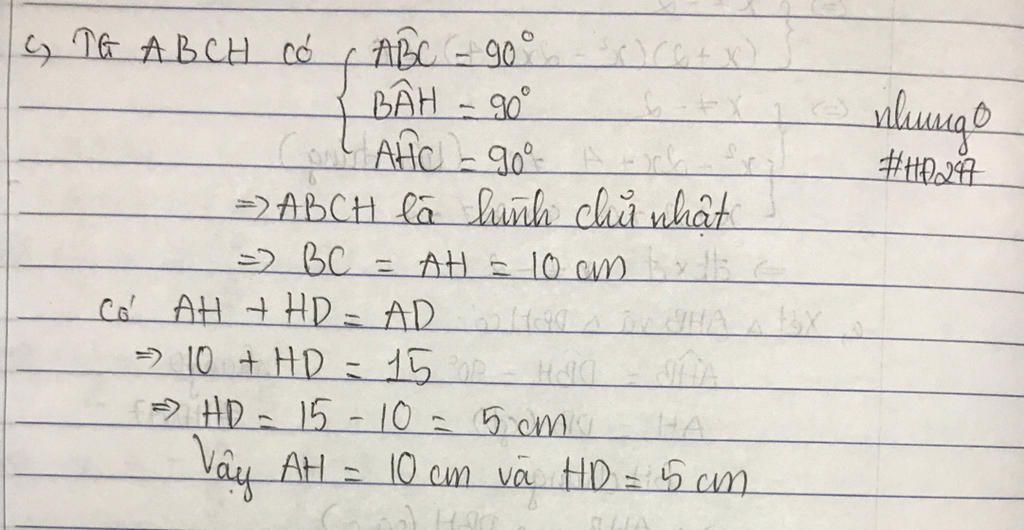 c, TG ABCH có { AB̂C = 90°
BÂH = 90°
AĤC = 90°
nhung0
#HĐ247
=> ABCH là hình chữ nhật
=> BC = AH = 10 cm
Có AH + HD = AD
=> 10 + HD = 15
=> HD = 15 - 10 = 5 cm
Vậy AH = 10 cm và HD = 5 cm